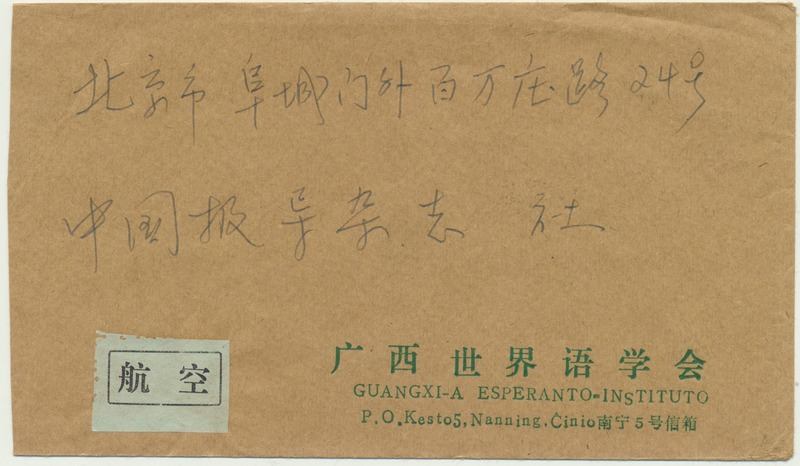 北京市阜城门外百万庄路24号
中国报导杂志社
航空
广西世界语学会
GUANGXI-A ESPERANTO-INSTITUTO
P.O.Kesto5,Nanning,Ĉinio南宁5号信箱